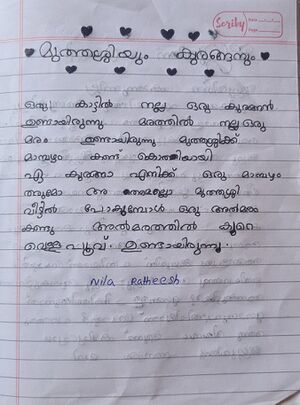 Scriby
Date
Page
മുത്തശ്ശിയും കുരങ്ങനും
ഒരു കാട്ടിൽ നല്ല ഒരു കുരങ്ങൻ
ഉണ്ടായിരുന്നു മരത്തിൽ നല്ല ഒരു
മരം ഉണ്ടായിരുന്നു മുത്തശ്ശിക്ക്
മാമ്പഴം കണ്ട് കൊതിയായി
ഏ കുരങ്ങാ എനിക്ക് ഒരു മാമ്പഴം
തരുമോ അ മുത്തശ്ശി
വീട്ടിൽ പോകുമ്പോൾ ഒരു അൽമരം
കണ്ടു അൽമരത്തിൽ കുറെ
വെള്ളപൂവ് ഉണ്ടായിരുന്നു.
Nila Ratheesh